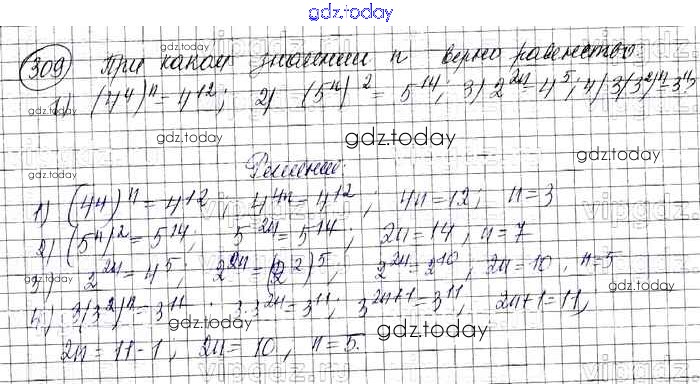 gdz.today
309) При каком значении n верно равенство:
gdz.today
1) (4⁴)ⁿ = 4¹²; 2) (5ⁿ)² = 5¹⁴; 3) 2²ⁿ = 4⁵; 4) 3(3²)ⁿ = 3¹¹
gdz.today
gdz.today
gdz.today
Решение:
gdz.today
1) (4⁴)ⁿ = 4¹²; 4⁴ⁿ = 4¹²; 4n = 12; n = 3
vipgdz
vipgdz
2) (5ⁿ)² = 5¹⁴; 5²ⁿ = 5¹⁴; 2n = 14, n = 7
3) 2²ⁿ = 4⁵; 2²ⁿ = (2²)⁵; 2²ⁿ = 2¹⁰, 2n = 10, n = 5
gdz.today
4) 3(3²)ⁿ = 3¹¹; 3·3²ⁿ = 3¹¹; 3²ⁿ⁺¹ = 3¹¹, 2n+1 = 11,
gdz.today
gdz.today
2n = 11-1, 2n = 10, n = 5.
gdz.today